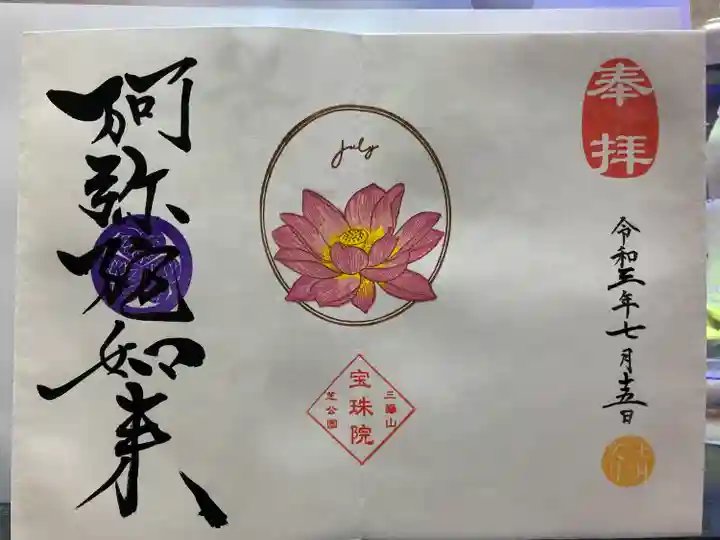 奉拝
令和三年七月十五日
July
三縁山
宝珠院
芝公園
阿弥陀如来